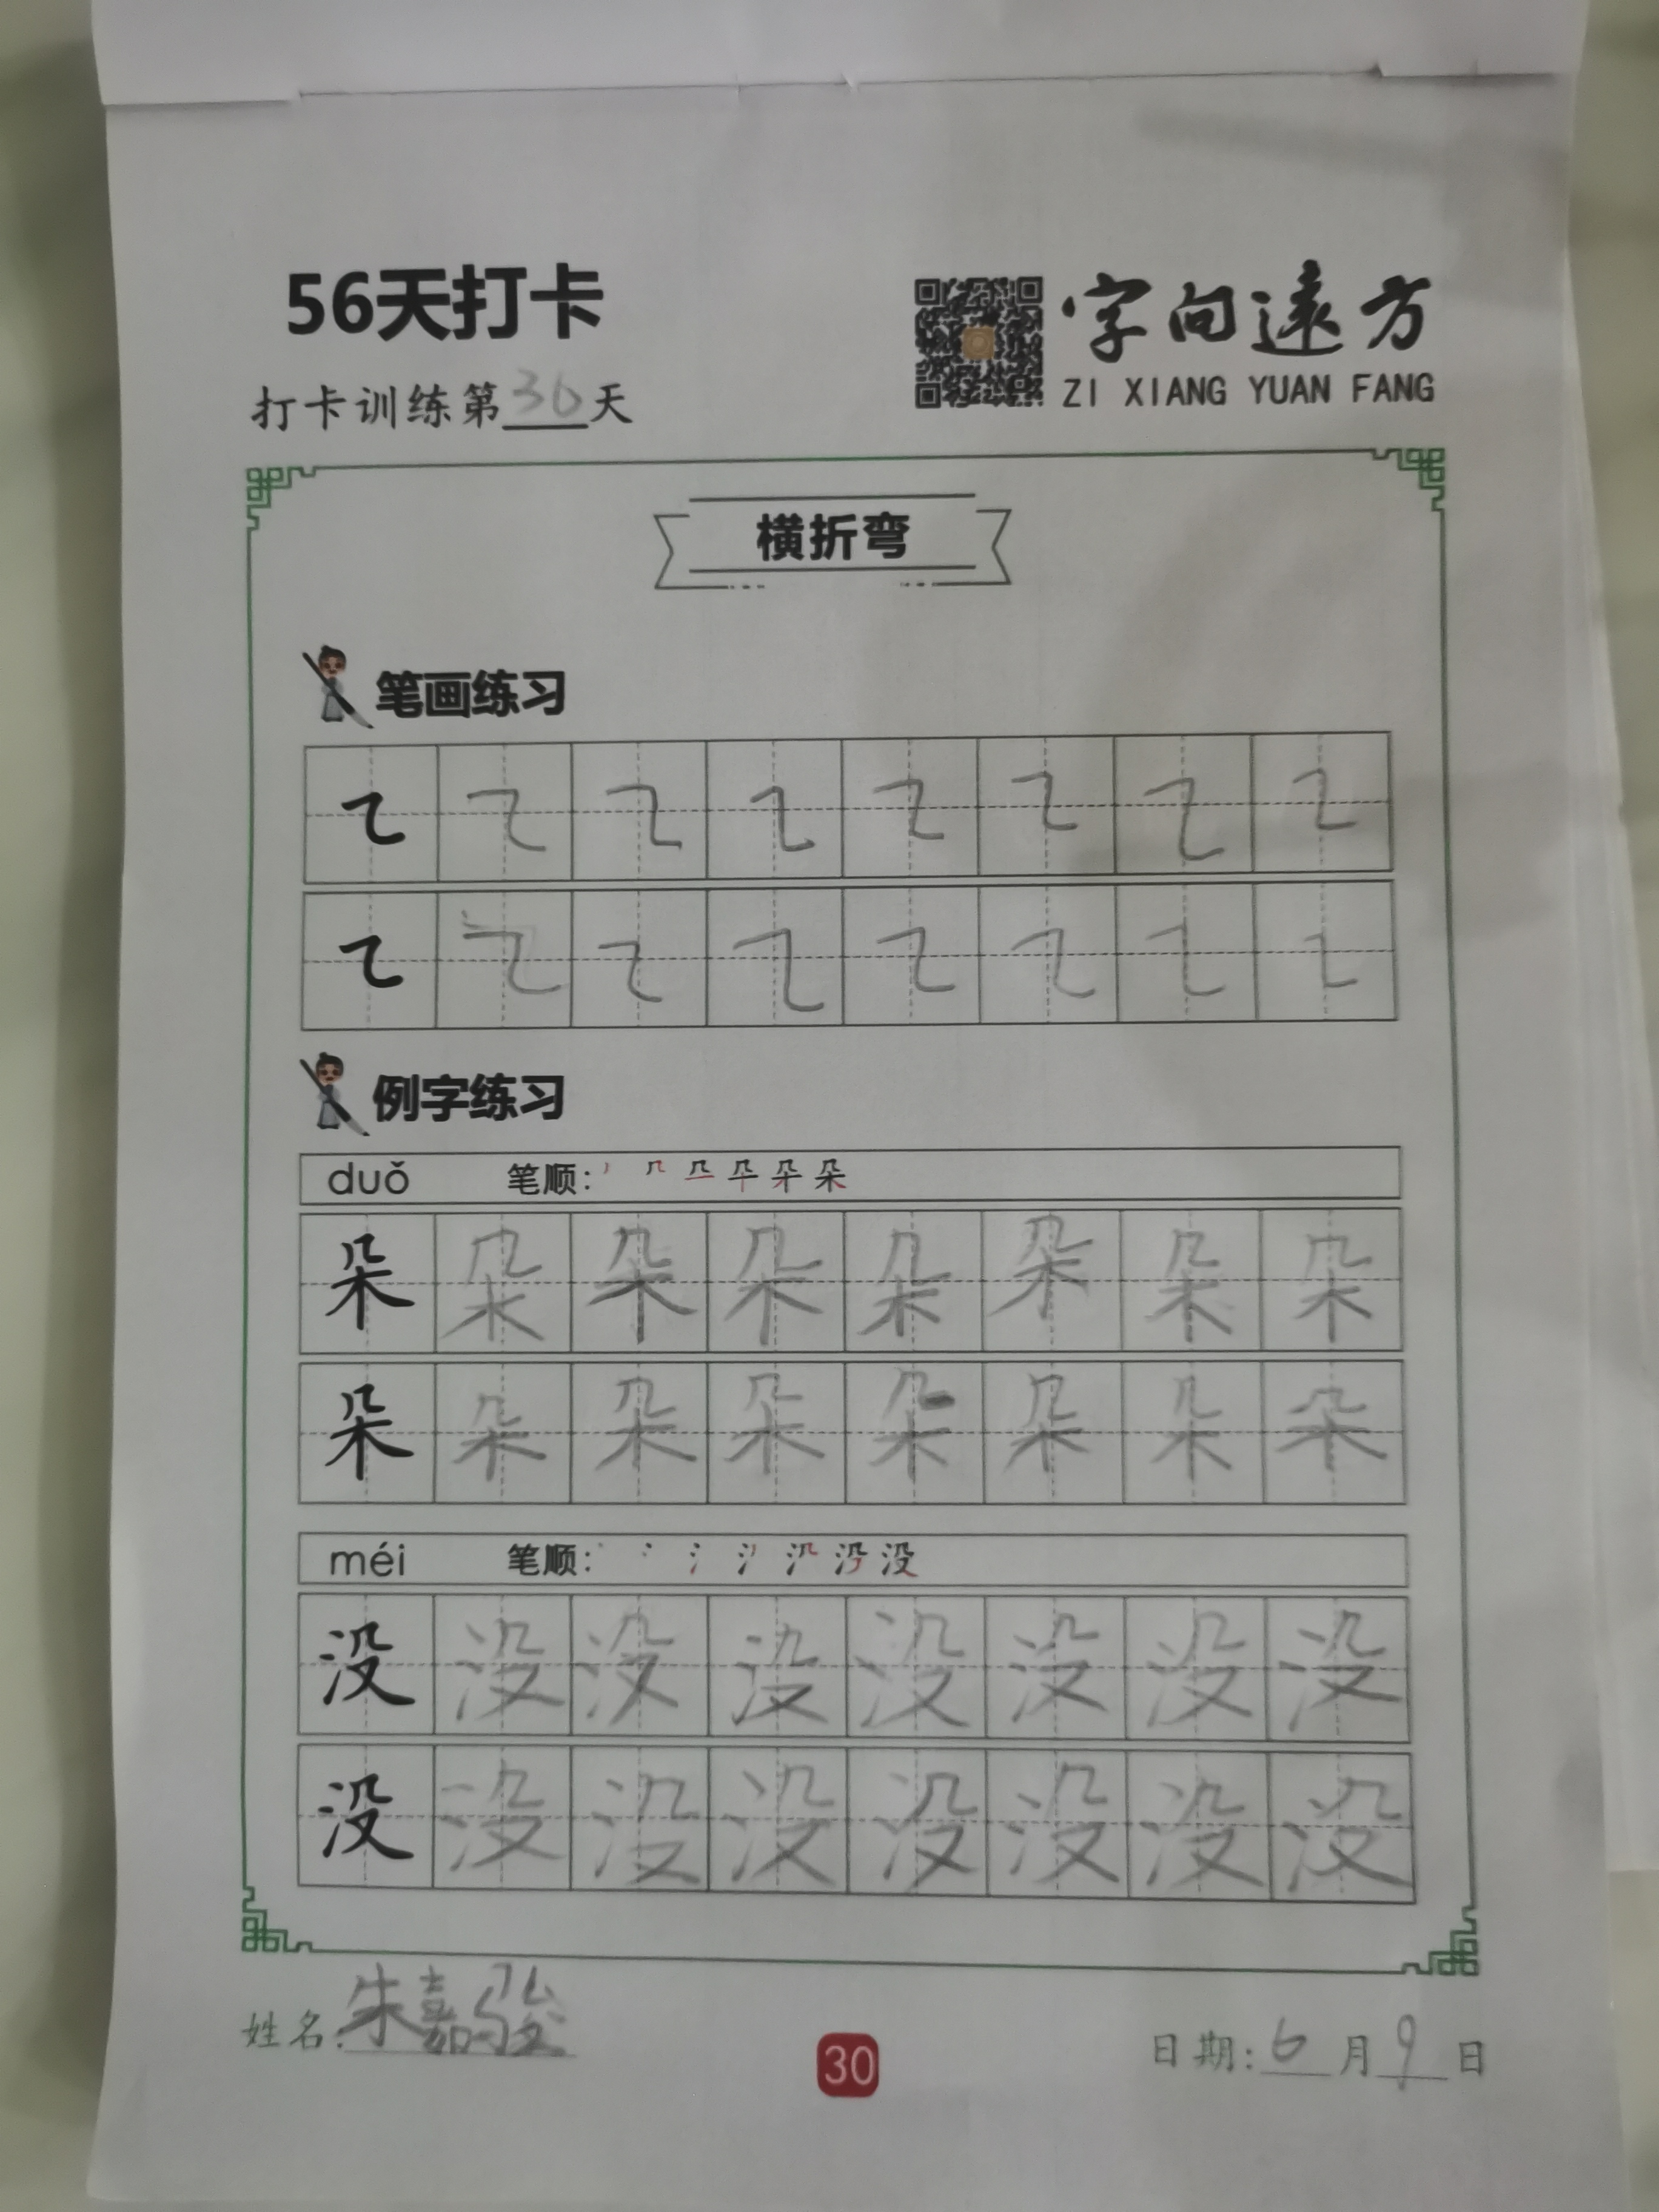 56天打卡
字向遠方
ZI XIANG YUAN FANG
打卡训练第36天
横折弯
笔画练习
例字练习
duǒ 笔顺:
朵 朵 朵 朵 朵 朵 朵 朵
朵 朵 朵 朵 朵 朵 朵 朵
méi 笔顺:
没 没 没 没 没 没 没 没
没 没 没 没 没 没 没 没
姓名:朱嘉骏
30
日期:6月9日